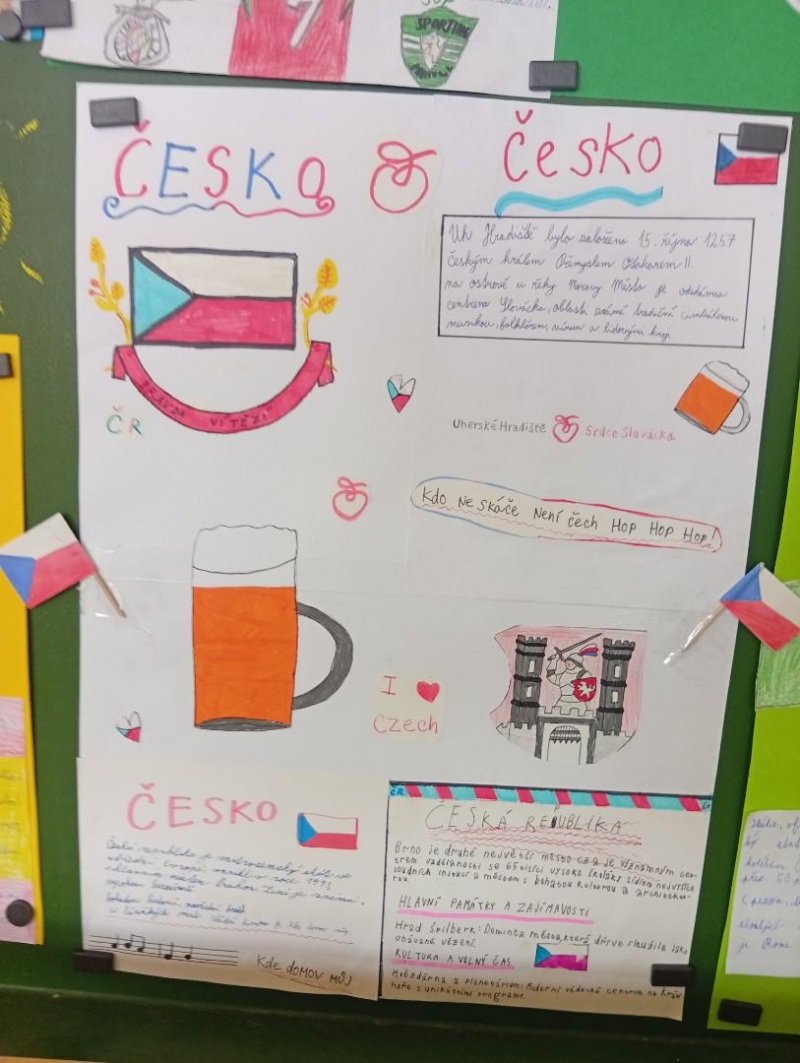 SPORTING
7
ČESKO
ČESKO
Uh Hradiště bylo založeno 15. října 1257
českým králem Přemyslem Otakarem II.
na ostrově u řeky Moravy Město je odedávna
centrem Slovácka, oblasti známé tradiční cimbálovou
muzikou, folklórem, vínem a lidovými kroji
PRAVDA VÍTĚZÍ
ČR
Uherské Hradiště Srdce Slovácka
Kdo Ne skáče Není čech Hop Hop Hop!
I
Czech
ČESKO
Česká republika je vnitrozemský stát ve
střední Evropě vznikl v roce 1993
s hlavním městem Prahou. Země je známá
Kde domov můj
ČR
ČESKÁ REPUBLIKA
Brno je druhé největší město ČZ a je významným cen-
trem vzdělanosti se 65 tisíci vysoko školáky sídlem nejvyších
soudních institucí a městem s bohatou kulturou a architektu-
rou.
HLAVNÍ PAMÁTKY A ZAJÍMAVOSTI
Hrad Špilberk: Dominta města, která dříve sloužila jako
obávané vězení.
KULTURA A VOLNÝ ČAS
Hvězdárna a planetárium: Moderní vědecké centrum na Kraví
hoře s unikátními programi.
Itálie,
je Rome